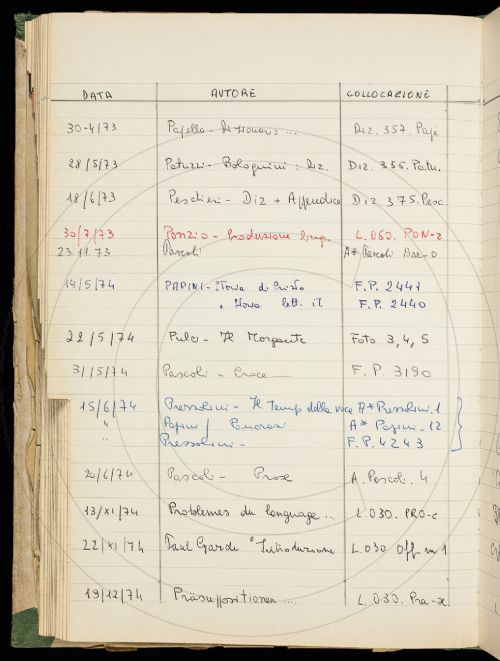 DATA AUTORE COLLOCAZIONE
30-4/73 Pajello - Dizionario ... Diz. 357. Paje
28/5/73 Patuzzi - Bolognini: Diz. Diz. 356. Patu.
18/6/73 Peschieri - Diz + Appendice Diz 375. Pesc.
30/7/73 Ponzio - Produzione ling. L. 030. PON-2
23.11.73 Pascoli A* Pascoli
14/5/74 PAPINI - Storia di Cristo F.P. 2441
" Storia lett. it. F.P. 2440
22/5/74 Pulci - Il Morgante Foto 3,4,5
31/5/74 Pascoli - Croce F.P. 3190
15/6/74 Prezzolini - Il Tempo della voce A* Prezzolini.1
" Papini / Pancrazi A* Papini.12
" Prezzolini - F.P. 4243
20/6/74 Pascoli - Prose A. Pascoli. 4
13/XI/74 Problemes du language ... L.030. PRO-c
22/XI/74 Paul Garde "Introduzione L.030
19/12/74 Präsuppositionen .... L.030. Pra-